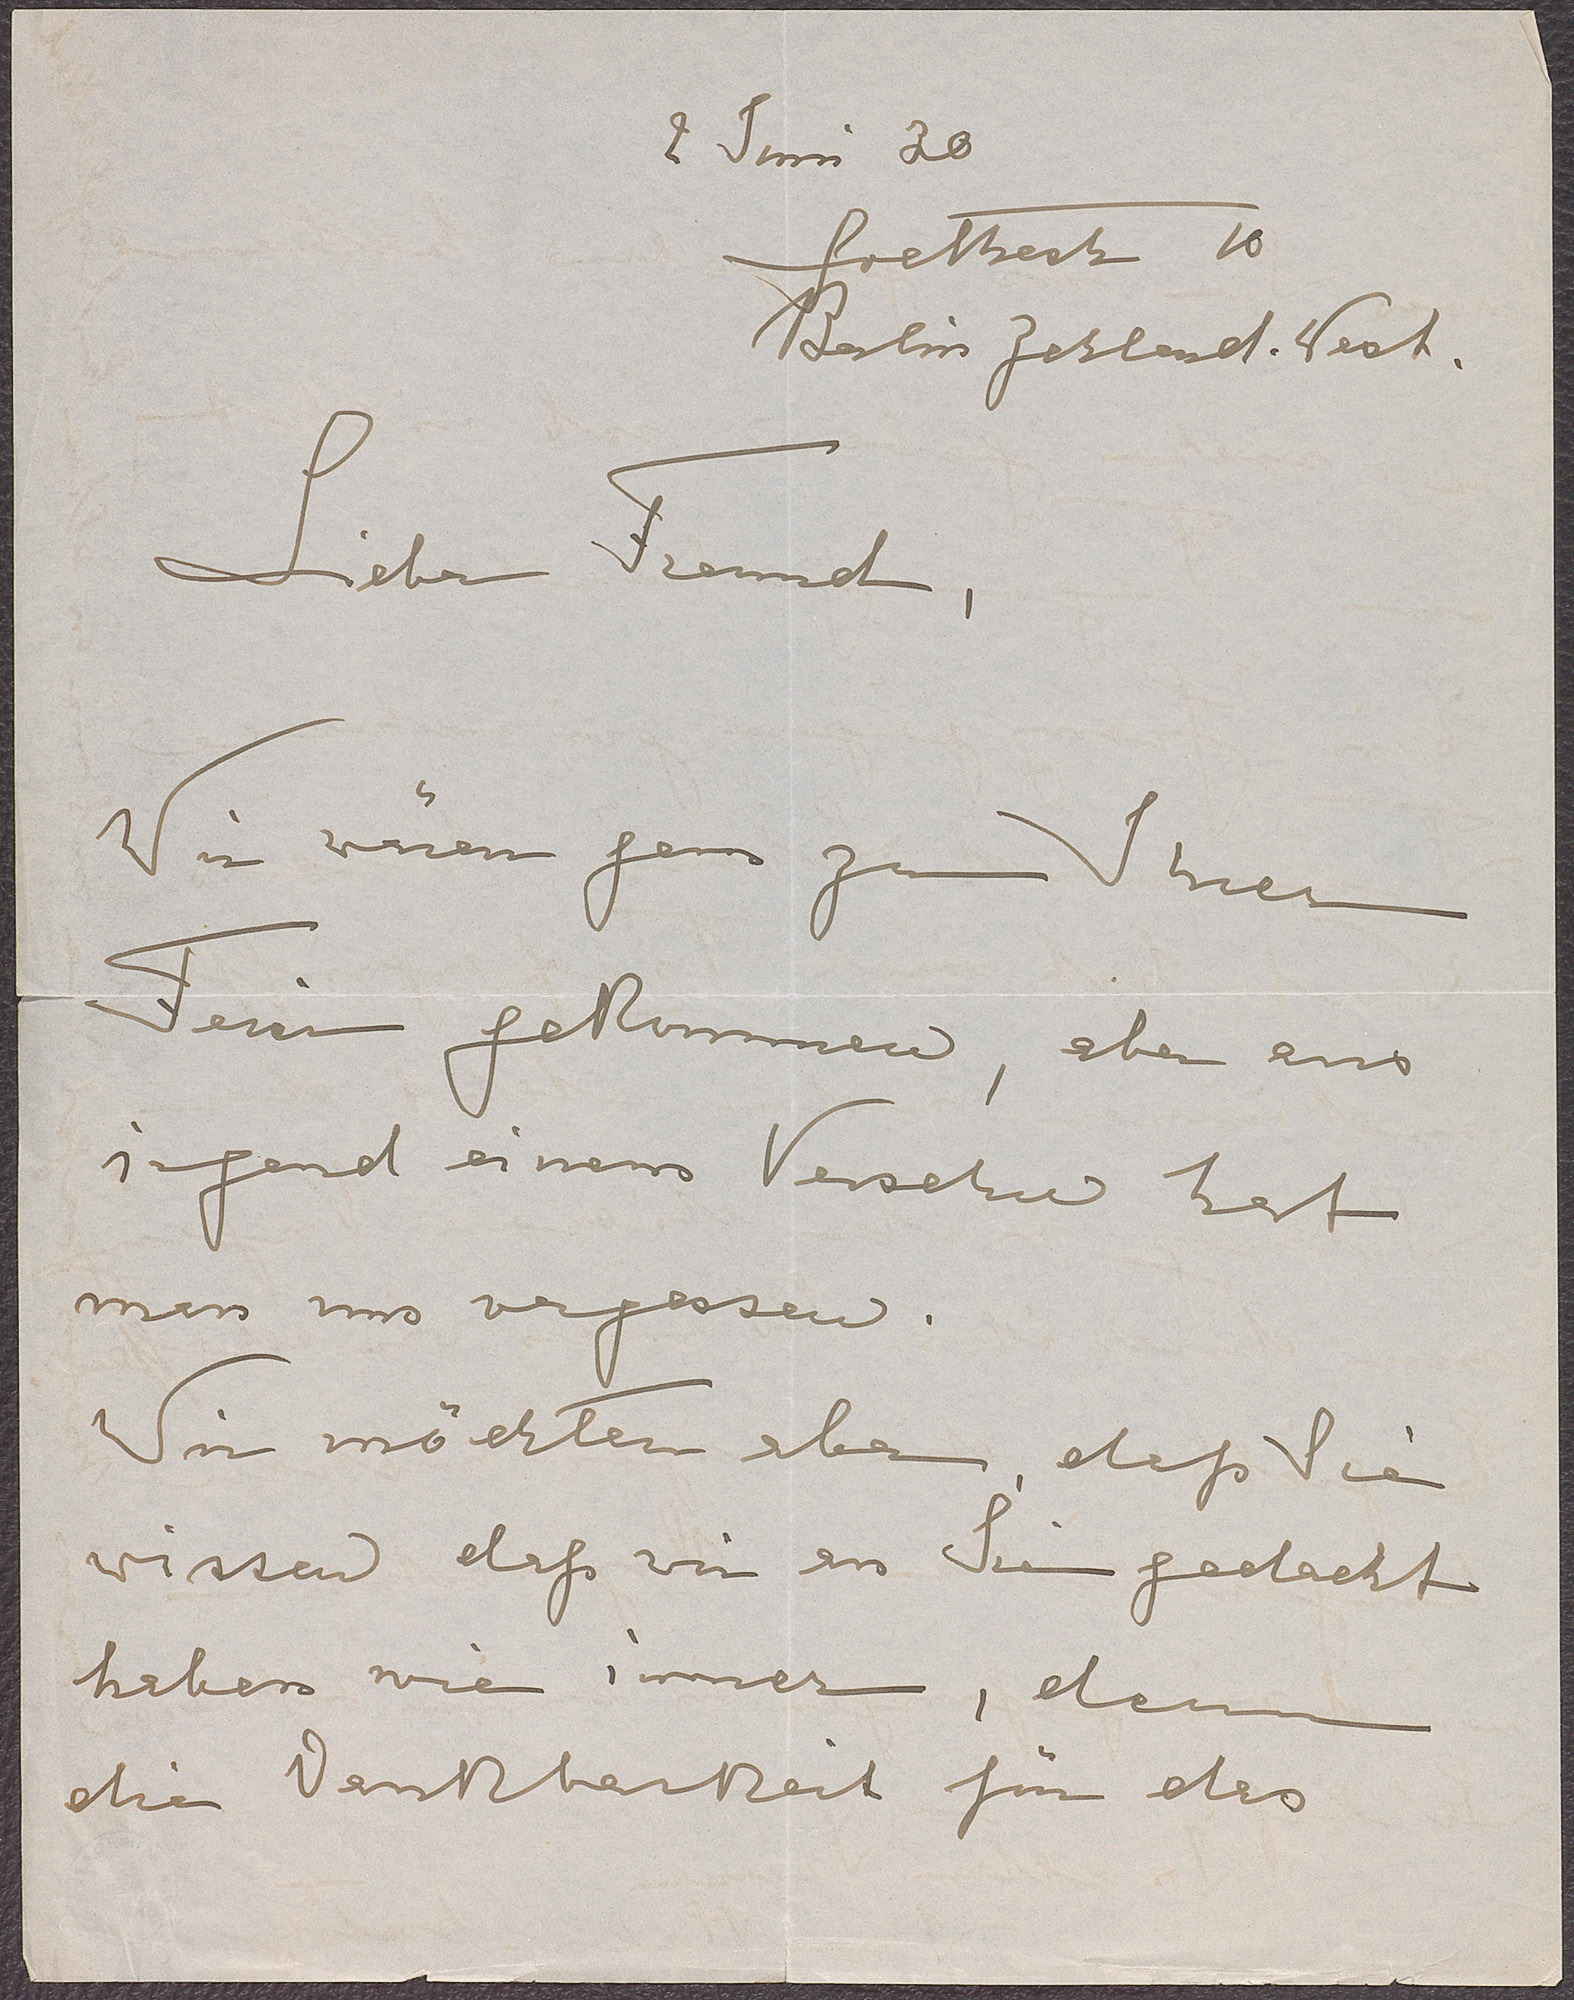 2 Juni 30
Goethestr 10
Berlin Zehlend. West.
Lieber Freund,
Wir wären gern zu Ihrer
Feier gekommen, aber aus
irgend einem Versehen hat
man uns vergessen.
Wir möchten aber, daß Sie
wissen daß wir an Sie gedacht
haben wie immer, denn
die Dankbarkeit für das